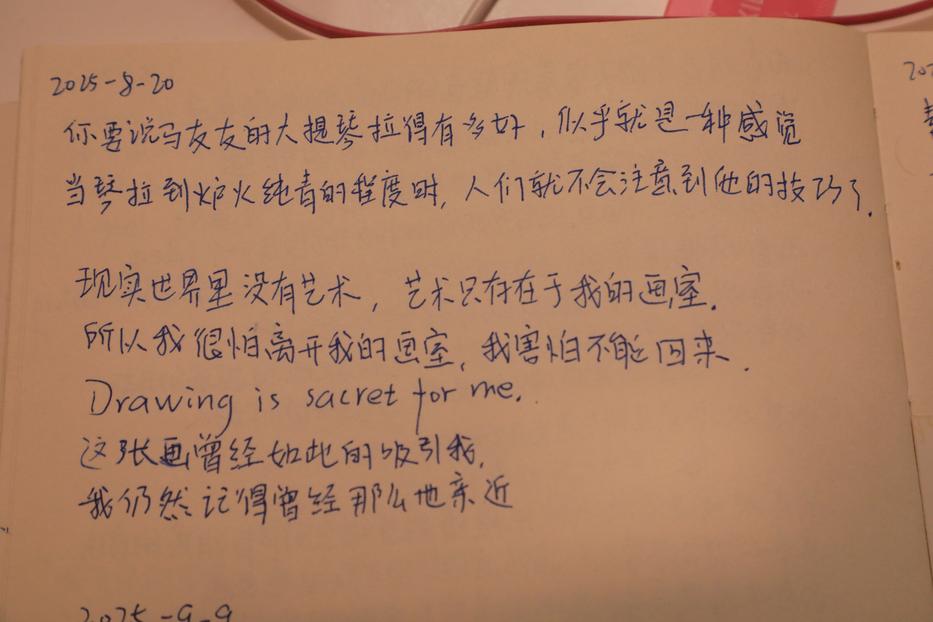 2025-8-20
你要说马友友的大提琴拉得有多好，似乎就是一种感觉
当琴拉到炉火纯青的程度时，人们就不会注意到他的技巧了.
现实世界里没有艺术，艺术只存在于我的画室.
所以我很怕离开我的画室，我害怕不能回来.
Drawing is sacret for me.
这张画曾经如此的吸引我，
我仍然记得曾经那么地亲近
2025-9-9